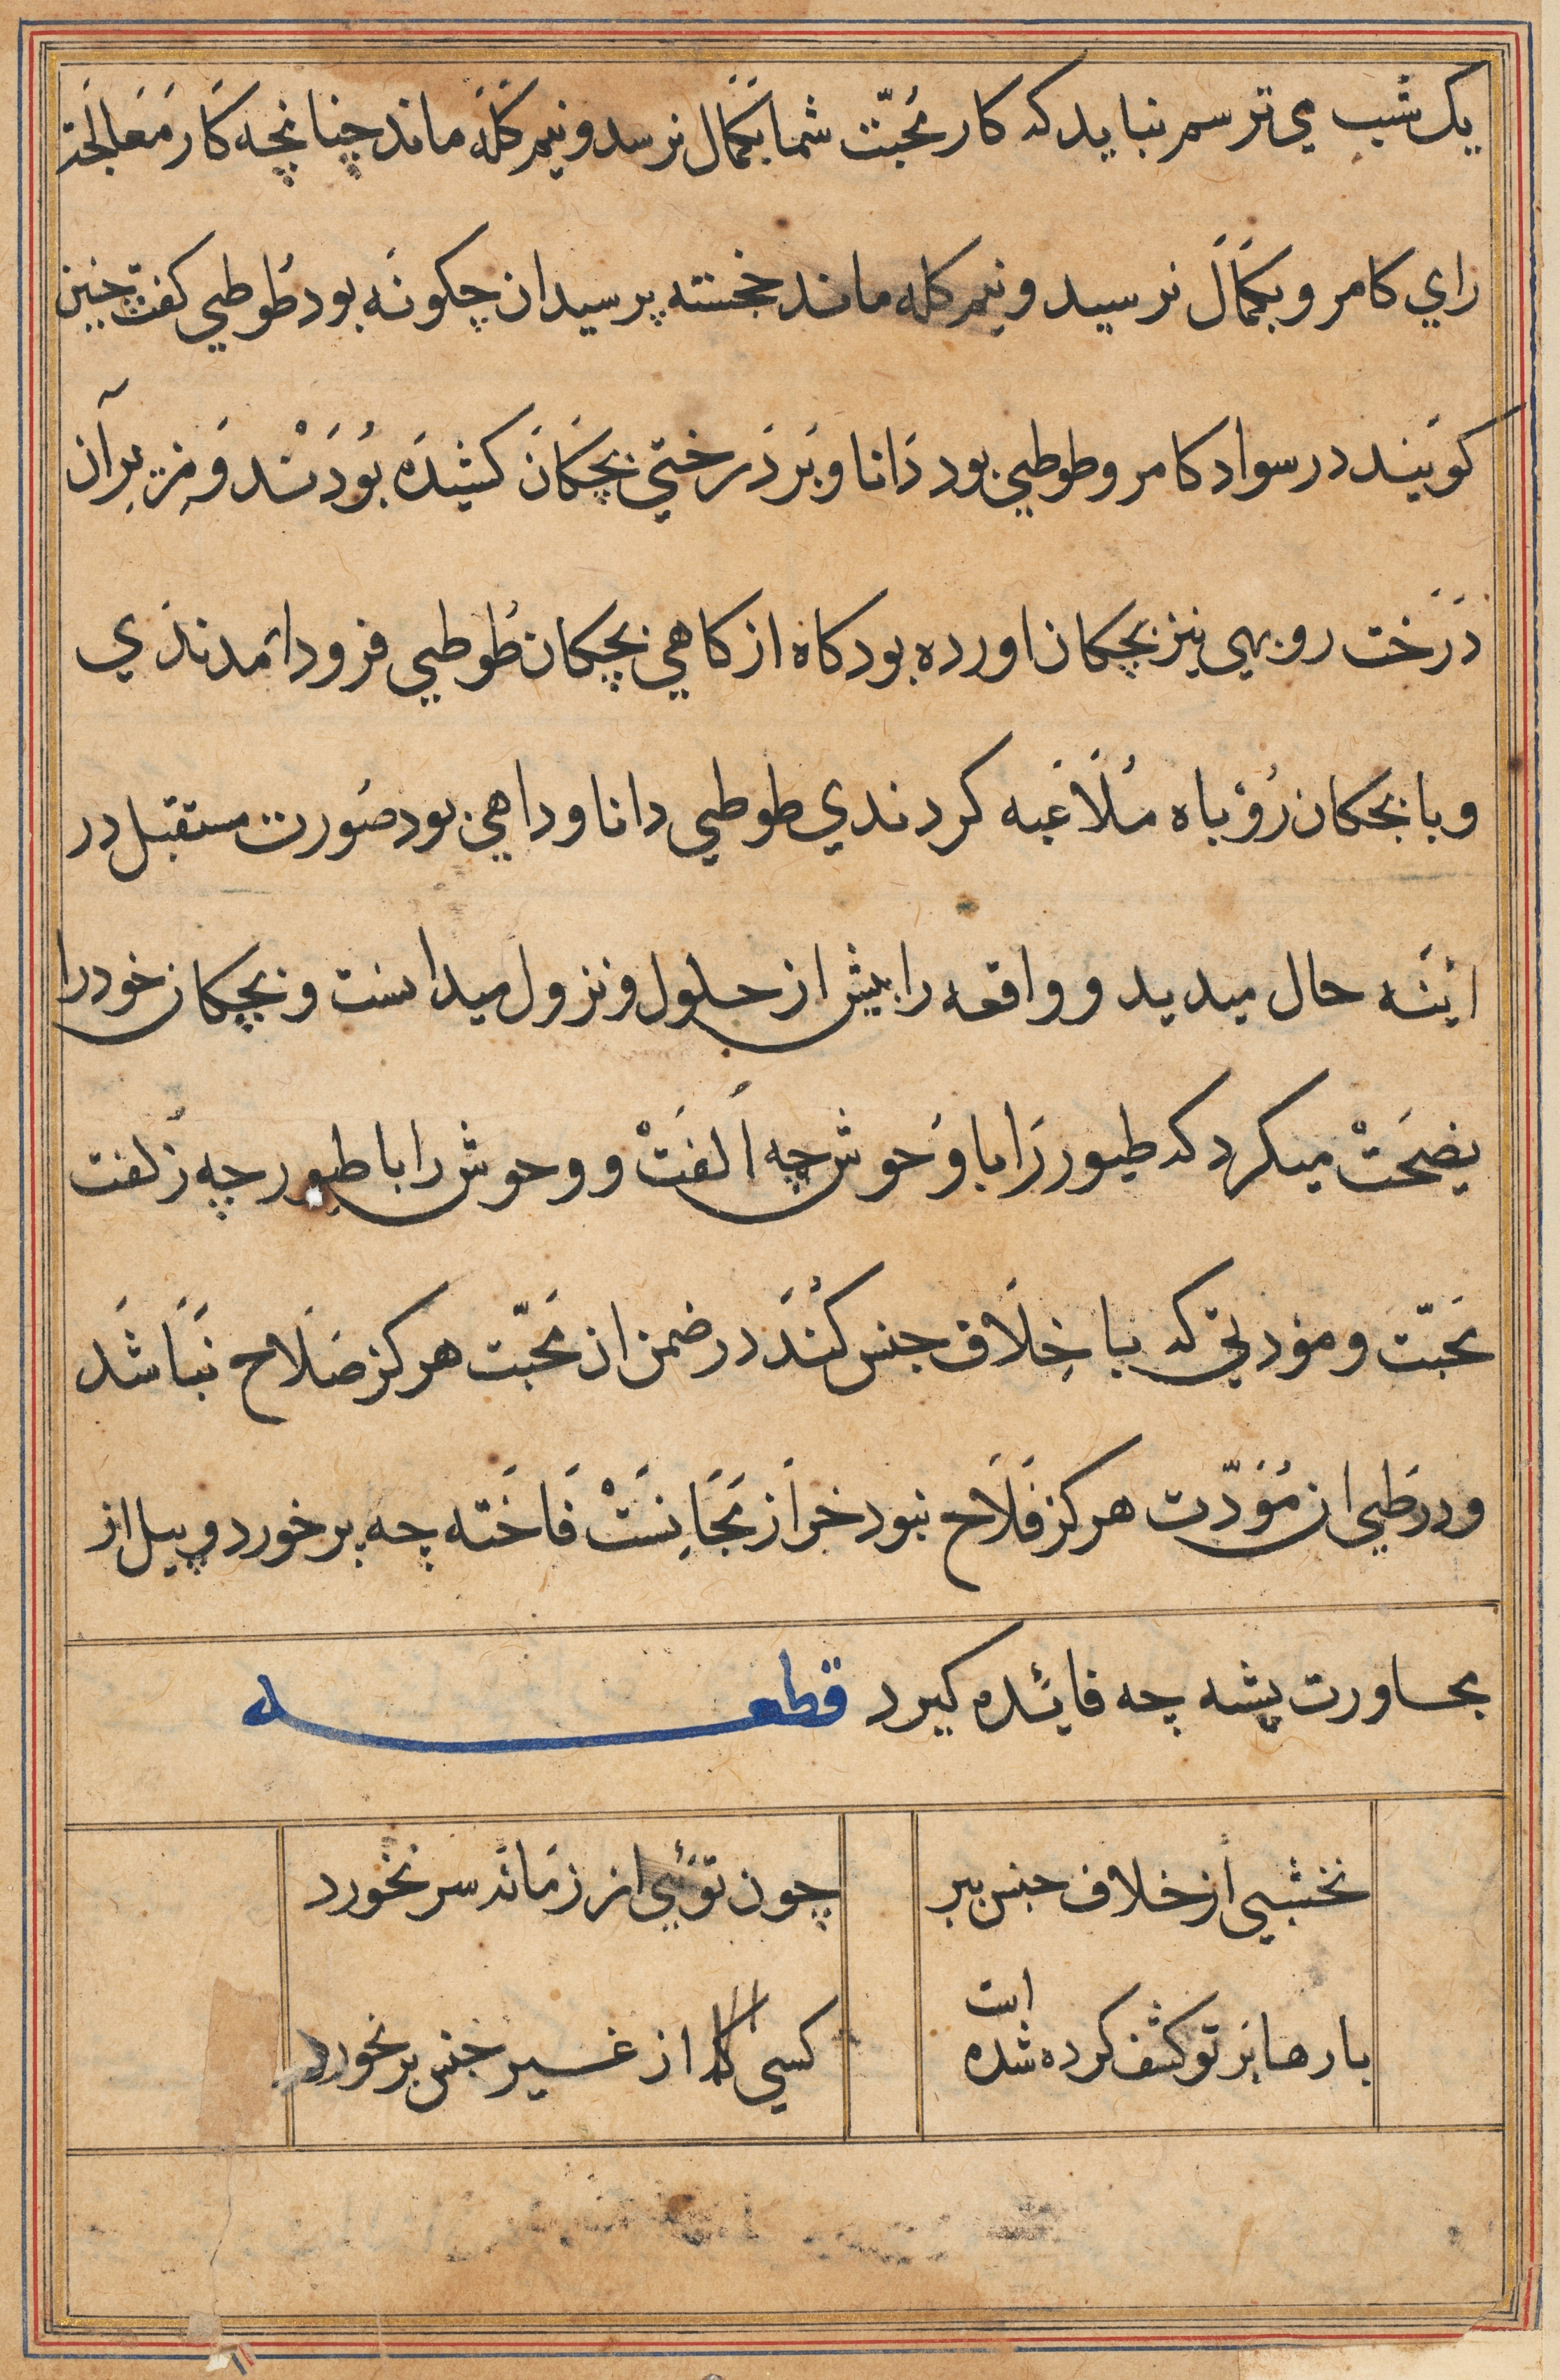 یک شب می ترسم نباید که کار مُحبّت شما بَکَمَال نرسد و نیم کَلَه ماند چنانچه کَار مَعَالَجَت
رای کامرو بکَمَالَ نرسید و نیم کله ماند خجسته پرسید ان چکونَه بود طُوطی کفت چنین
کوَیند در سواد کامرو طوطی بود دَانا و بَر دَرختی بچَکَانَ کشیدَه بُودَنْد وَ برآن
دَرَخت روبهی نیز بچکان اورده بود کاه از کاهی بچکان طُوطی فرود امدندَی
و با بچکان رُوْباه مُلَاعَبه کردندی طوطی دانا و داهی بود صُورت مستقبل در
اینَه حال میدید و واقعه را پیش از حلول و نزول میدانست و بچکان خود را
نصِحَتْ میکرد که طیور رَا با وُحوش چه اُلفَتْ و وحوش را با طیور چه زُلفت
مَحبّت و مؤدتی که با خِلَاف جنس کُنَدَ در ضمن ان مَحَبّت هرکز صَلَاح نَبَاشَد
و در طَی ان مُؤَدّت هرکز فَلَاَح نبود خر اَز مَجَانِسَتْ فَاخَته چه بر خورد و پیل از
مجاورت پشه چه فائده کیرد قطعه
نخشبی از خلاف جنس ببر چون توئی از زمانه سر نخورد
بارها بَر تو کشف کرده شده است کسی کا از غیر جنس بر نخورد